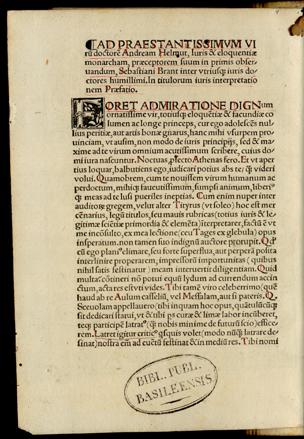 ¶AD PRAESTANTISSIMVM VI
rũ doctorẽ Andream Helmut, Iuris & eloquentiæ
monarcham, præceptorem suum in primis obser
uandum, Sebastiani Brant inter vtriusq; iuris do
ctores humillimi. In titulorum iuris interpretatio
nem Præfatio.
FORET ADMIRATIONE DIGNum
ornatissime vir, totiusq; eloquẽtiæ & facundiæ co
lumen ac longe princeps, cur ego adolescẽs nul
lius peritiæ, aut artis bonæ gnarus, hanc mihi vsurpem pro
uinciam, vt ausim, non modo de iuris principijs, sed & ma
xime ad te virum omnium acutissimum scribere, cuius do
mi iura nascuntur. Noctuas, Athenas fero. Et vt aper
tius loquar, balbutiens ego, iudicari potius abs te, videri
volui. Quamobrem, cum te nouissem virum humanum ac
perdoctum, mihiq; faueutissimum, sumpsi animum,
meas ad te lusi pueriles ineptias. Cum enim nuper inter
auditores gregem, velut alter Tityrus
cenarius, legũ titulos, seu mauis rubricas (totius iuris & le
gitimæ scientiæ primordia & elemẽta)
me incõsulto, ex mea lectione (ceu Tages ex glebula) opus
insperatum. non tamen suo indignũ auctore prorupit.
ego planissime, seu forte superflua, aut perperā posita
interlinire properarem, impendissimis importunitatibus (quibus
nihil satis festinatur) meam interuertit diligentiam. Quid
multa? cõtineri nõ potui equi ludum ad currendum accin
ctum, acta res est vti vides. Tibi tamẽ viro celeberrimo
haud ab re Aulum cæselliũ, vel Messalam, aut si pateris,
Sceuolam appellauero (tibi inquam hoc opus,
sit dedicari statui, vt & tibi curæ & limæ labor incũberet,
teq; participẽ latrare (
rem. Latret igitur critic, quisquis volet (modo nũquā latrare de
sinat) nostra em̃ ad eum si festinãt & in medium. Tibi nomi
BIBL. PUBL.
BASILEENSIS